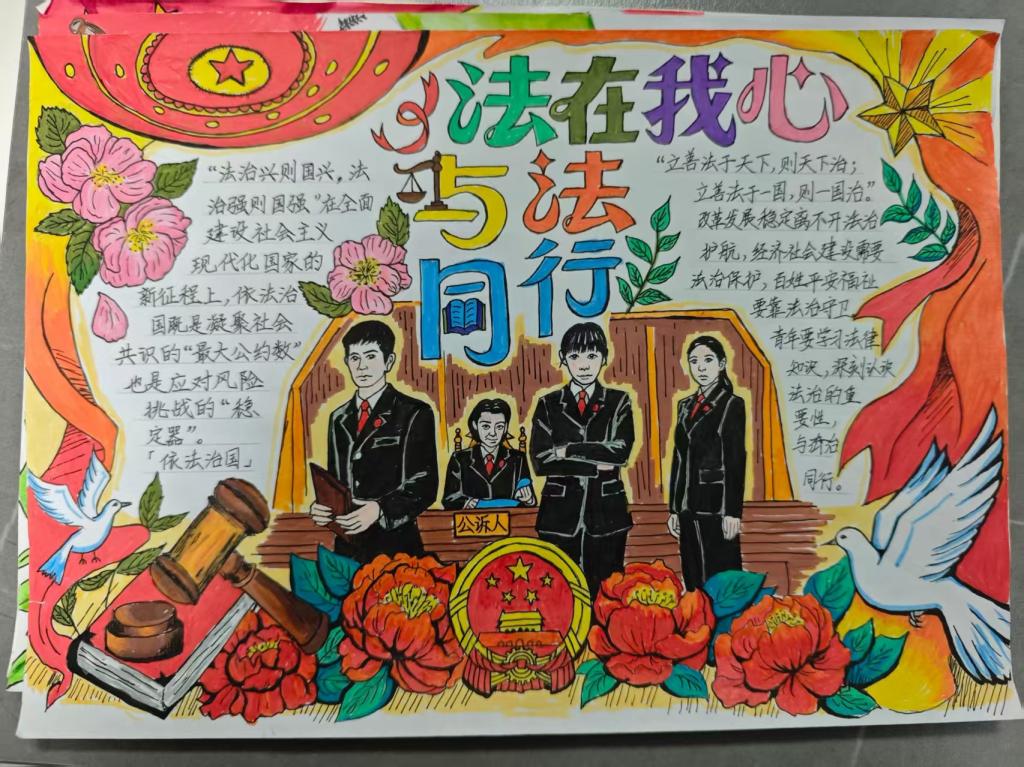 法在我心
与法
同行
“法治兴则国兴，法
治强则国强”在全面
建设社会主义
现代化国家的
新征程上，依法治
国既是凝聚社会
共识的“最大公约数”
也是应对风险
挑战的“稳
定器”。
「依法治国」
“立善法于天下，则天下治；
立善法于一国，则一国治”。
改革发展稳定离不开法治
护航，经济社会建设需要
法治保护，百姓平安福祉
要靠法治守卫
青年要学习法律
知识，深刻认识
法治的重
要性，
与法治
同行。
公诉人